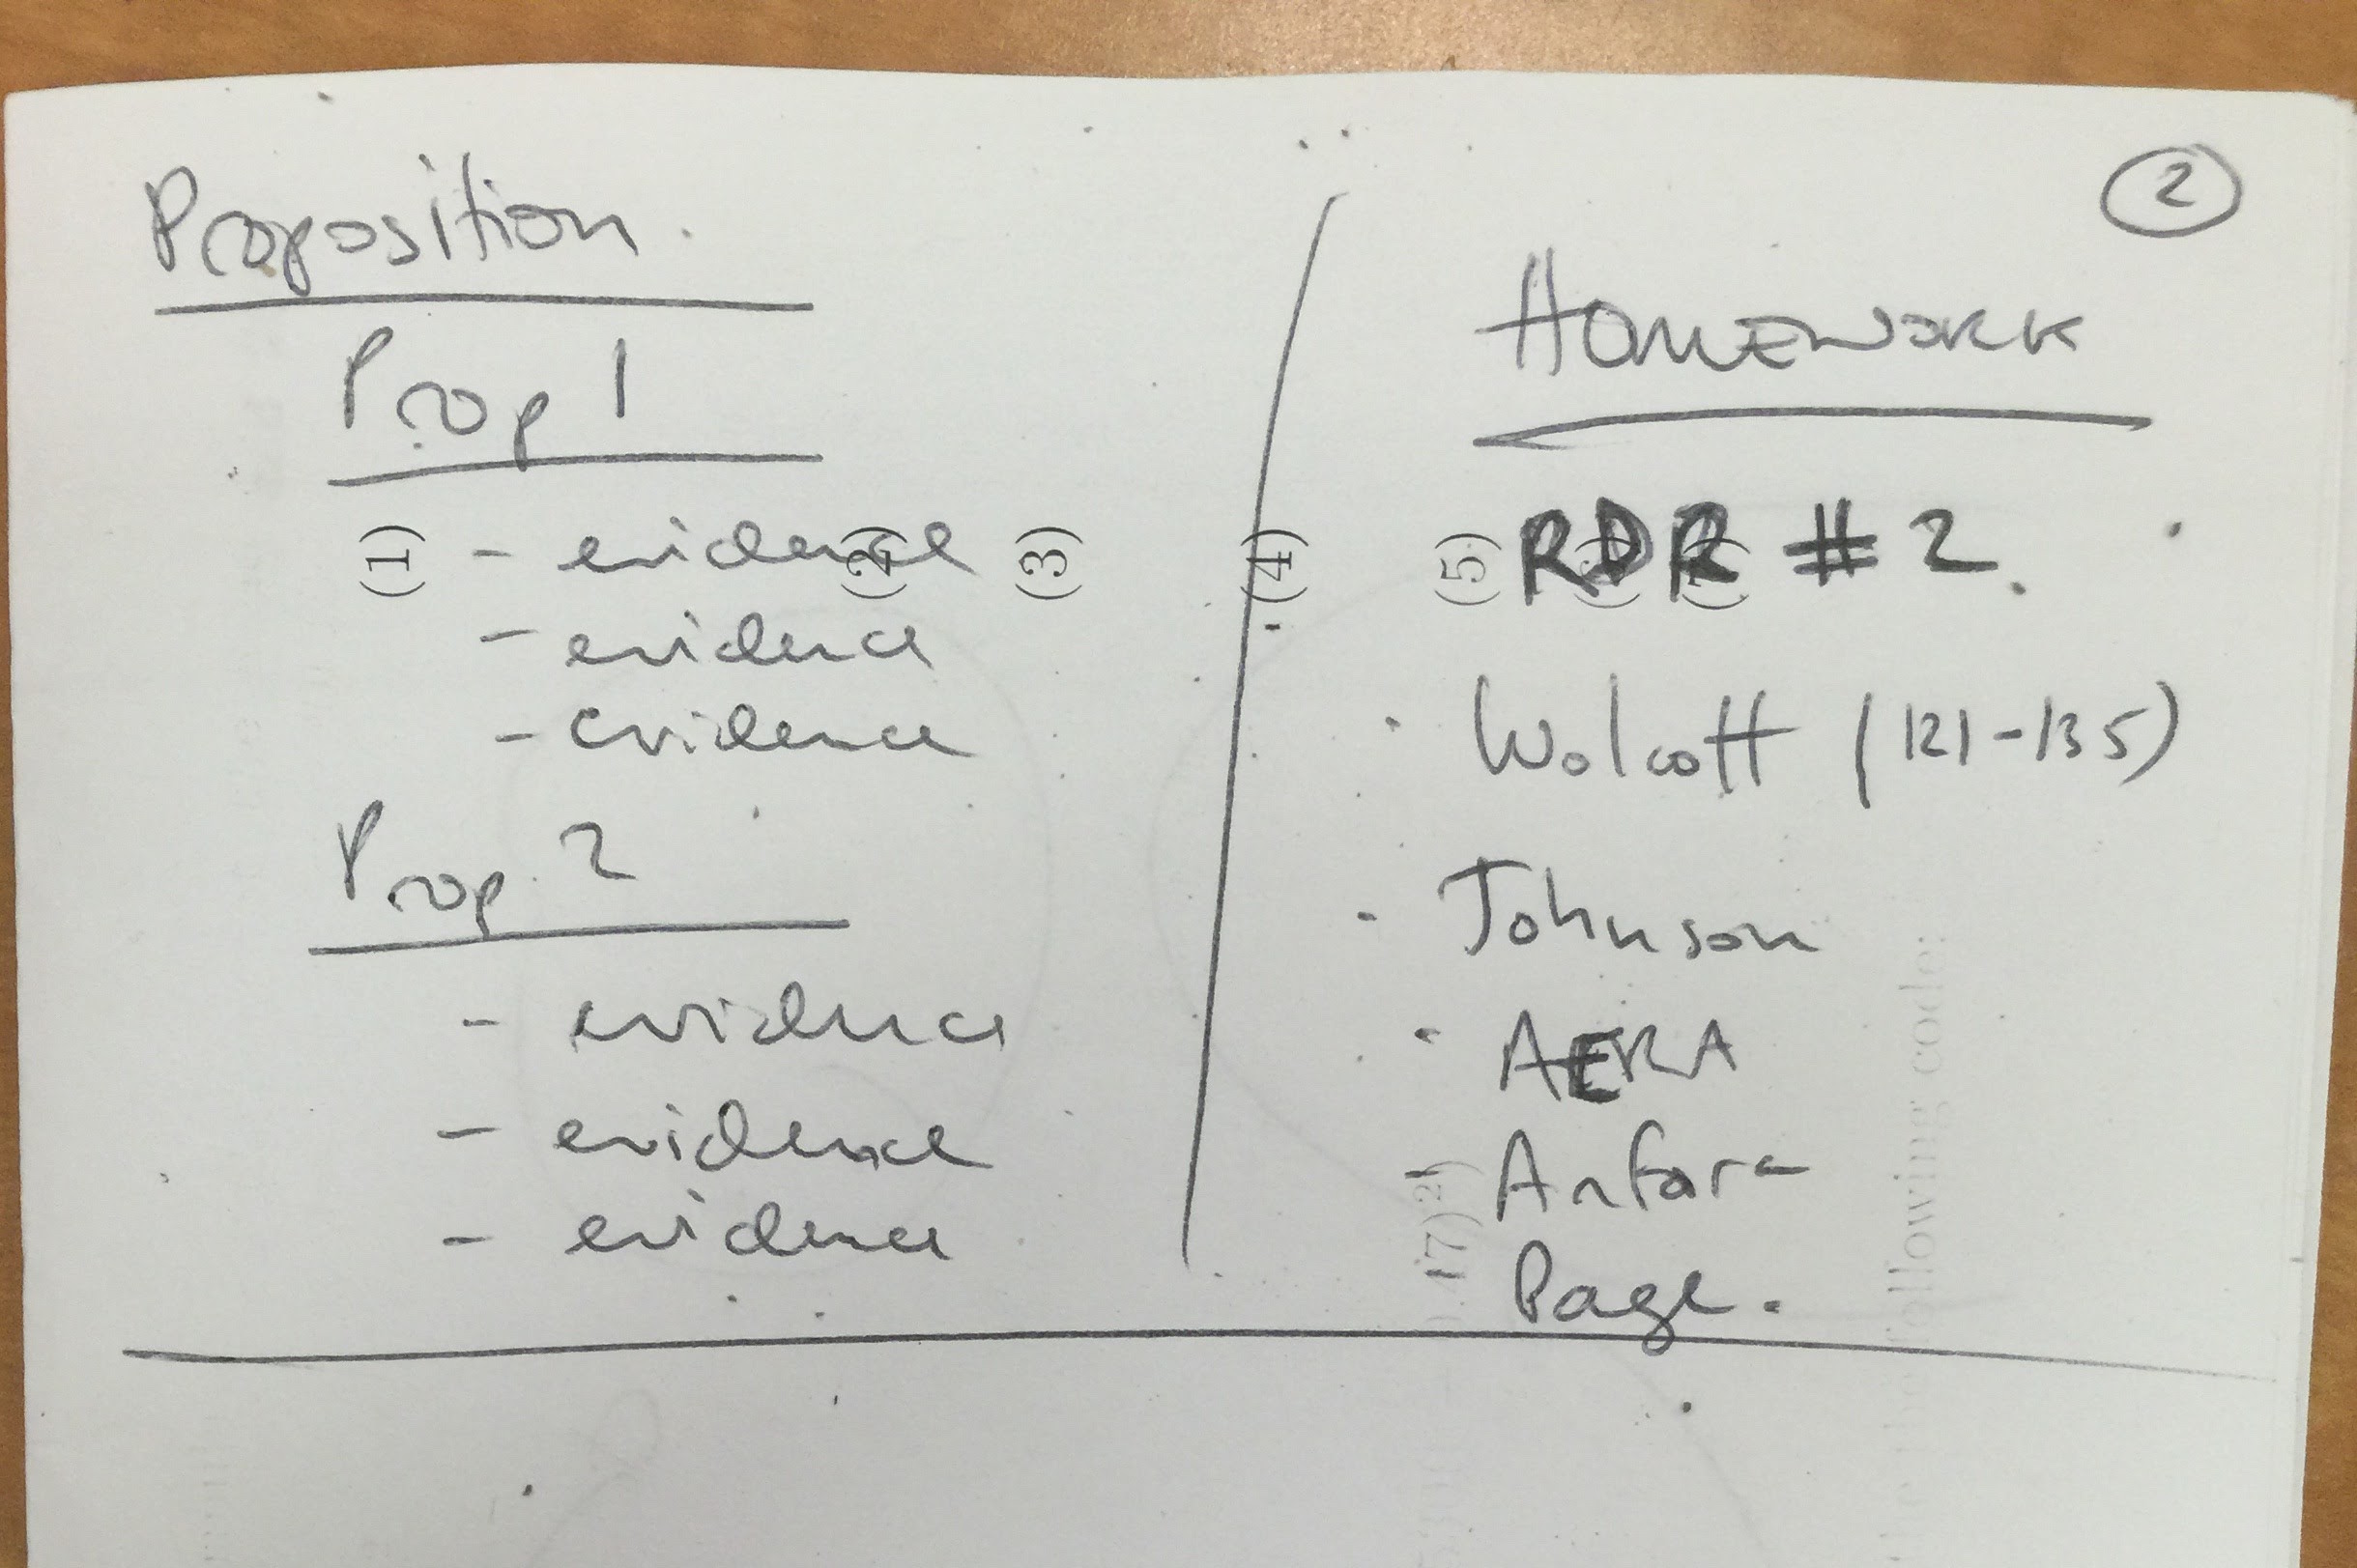 Proposition.
Prop 1
(1) - evidence (2) (3)
- evidence
- evidence
Prop 2
- evidence
- evidence
- evidence
2
HOMEWORK
(4) (5) RDR #2.
· Wolcott (121-135)
· Johnson
· AERA
Anfara
Page.
17) 21)
following code: